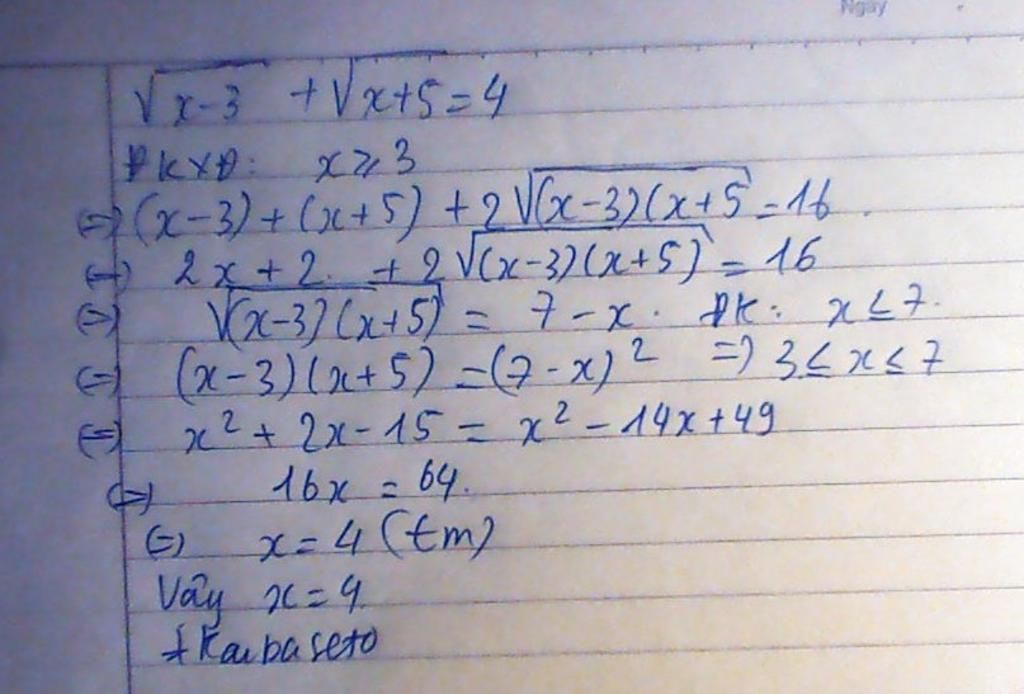 Ngày
√(x-3) + √(x+5) = 4
ĐKXĐ: x ≥ 3
(=) (x-3) + (x+5) + 2√((x-3)(x+5) = 16.
(=) 2x + 2. + 2√((x-3)(x+5)) = 16
(=) √((x-3)(x+5)) = 7 - x. ĐK: x ≤ 7.
(=) (x-3)(x+5) = (7-x)² => 3 ≤ x ≤ 7
(=) x² + 2x - 15 = x² - 14x + 49
(=) 16x = 64.
(=) x = 4 (tm)
Vậy x = 4.
+ Kaubaseto